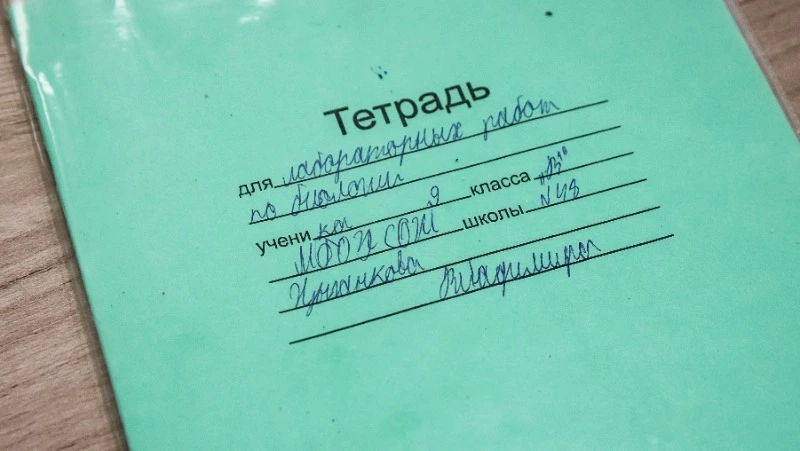 Тетрадь
для лабораторных работ
по биологии
учени ка 9 класса „В"
МБОУ СОШ школы №48
Цыганкова Владимира